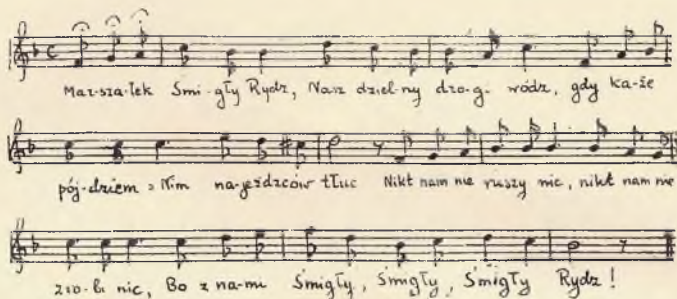 Mar-sza-łek Śmi-gły Rydz, Nasz dziel-ny dro-g- wódz, gdy ka-że
pój-dziem z Nim na-jeźdzców tłuc Nikt nam nie ruszy nic, nikt nam nie
zro-bi nic, Bo z na-mi Śmigły, Śmigły, Śmigły Rydz!